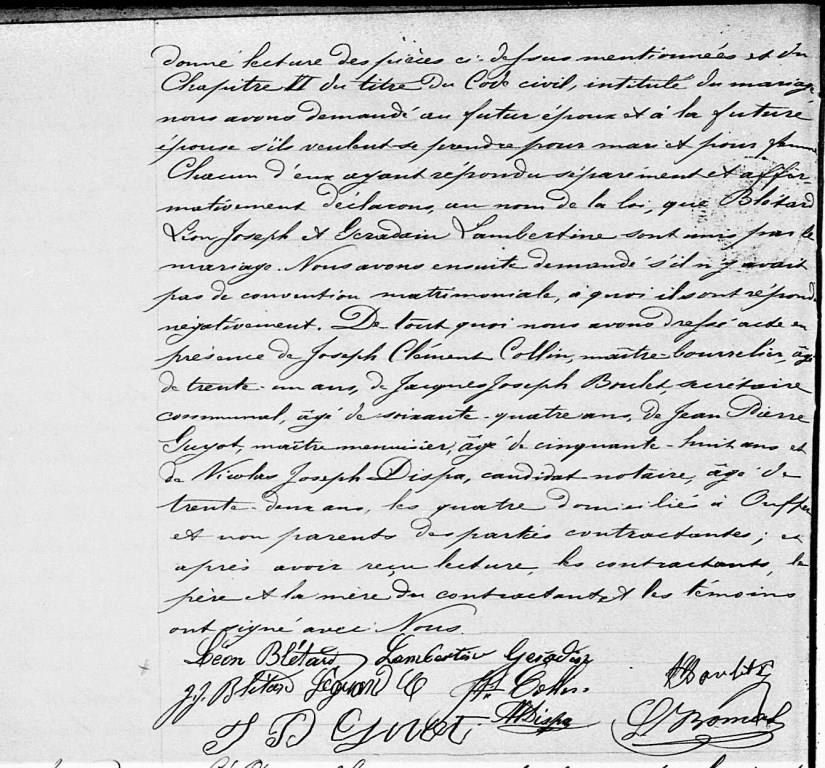 donné lecture des pièces ci-dessus mentionnées et du
Chapitre VI du titre du Code civil, intitulé du mariage,
nous avons demandé au futur époux et à la future
épouse s'ils veulent se prendre pour mari et pour femme
Chacun d'eux ayant répondu séparément et affir-
mativement déclarons, au nom de la loi, que Blétard
Léon Joseph et Geradain Lambertine sont unis par le
mariage. Nous avons ensuite demandé s'il n'y avait
pas de convention matrimoniale, à quoi ils ont répondu
négativement. De tout quoi nous avons dressé acte en
présence de Joseph Clément Collin, maître-bourrelier, âgé
de trente-un ans, de Jacques Joseph Boulet, secrétaire
communal, âgé de soixante-quatre ans, de Jean Pierre
Guyot, maître menuisier, âgé de cinquante-huit ans et
de Nicolas Joseph Dispa, candidat notaire, âgé de
trente-deux ans, les quatre domicilié à Ouffet
et non parents des parties contractantes; et
après avoir reçu lecture, les contractants, le
père et la mère du contractant et les témoins
ont signé avec Nous.
Léon Blétard Lambertine Geradin
J.J. Blétard Légrand C Collin
J P Guyot N Dispa